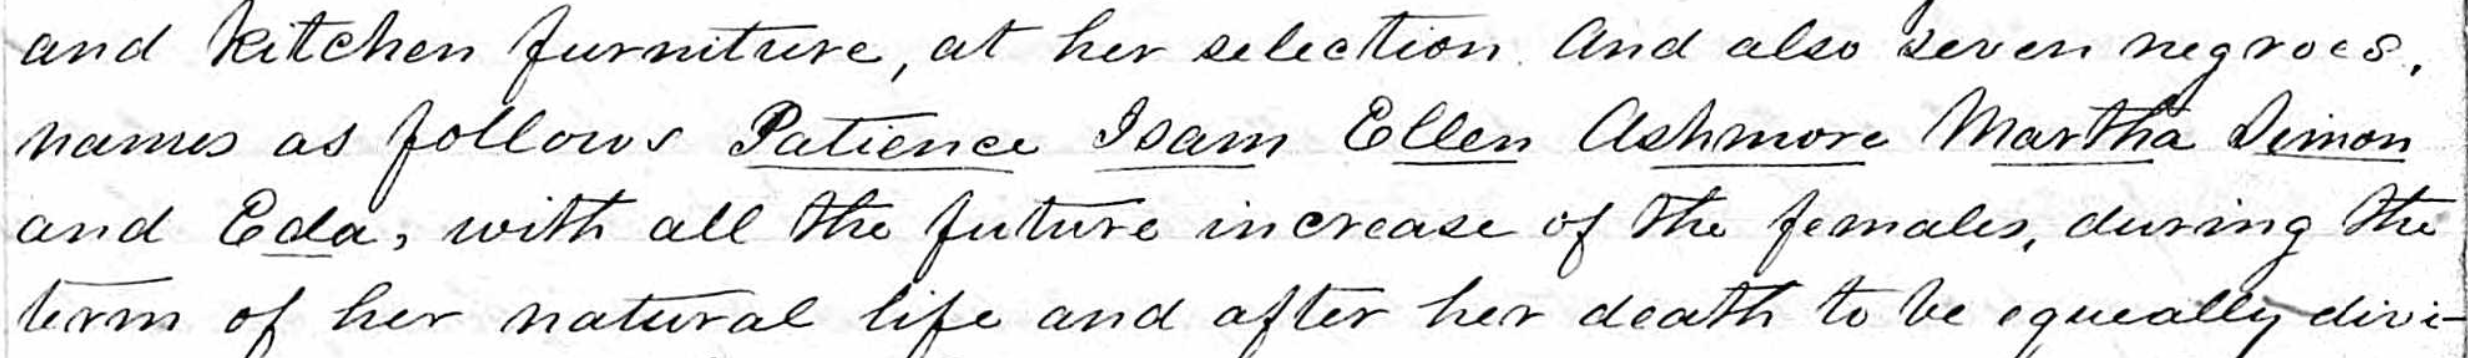 and kitchen furniture, at her selection. And also seven negroes,
names as follows Patience Isam Ellen Ashmore Martha Simon
and Eda, with all the future increase of the females, during the
term of her natural life and after her death to be equeally divi-